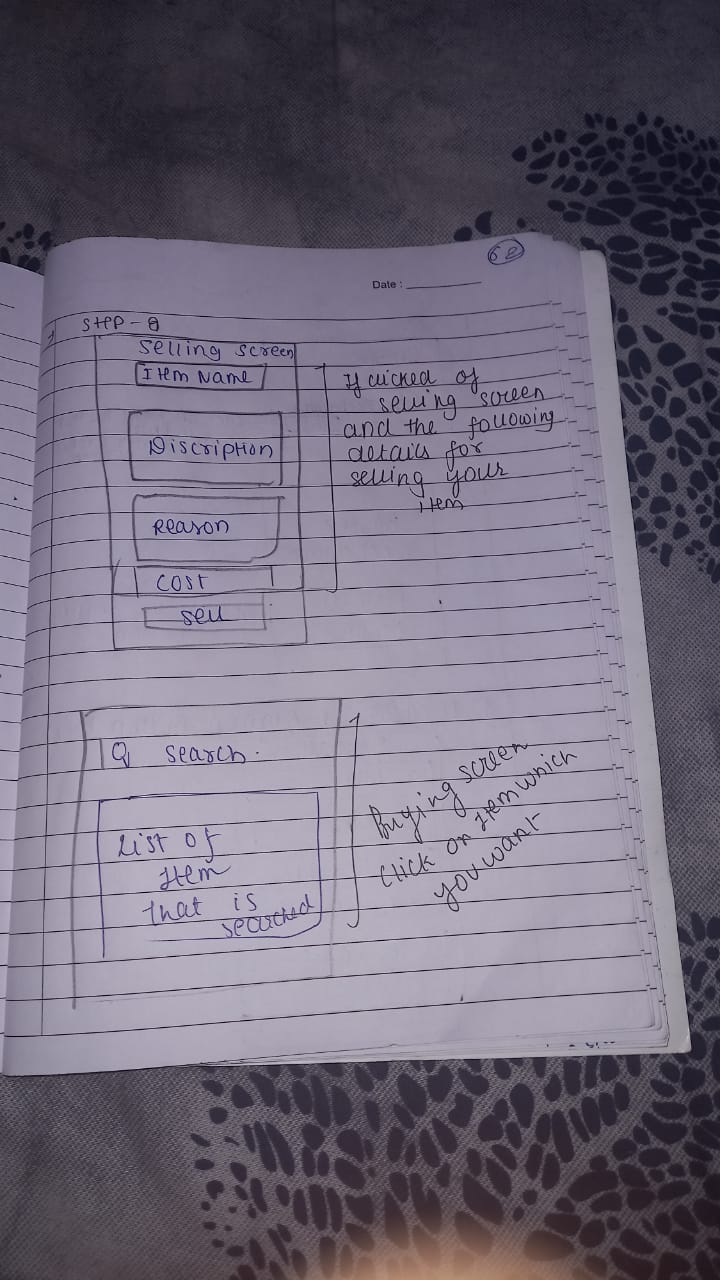 62
Date :
Step - 8
Selling screen
Item Name
Discription
Reason
cost
sell
If cicked of
selling screen
and the following
details for
selling your
item
Q search.
List of
Item
that is
searched
Buying screen
click on Item which
you want